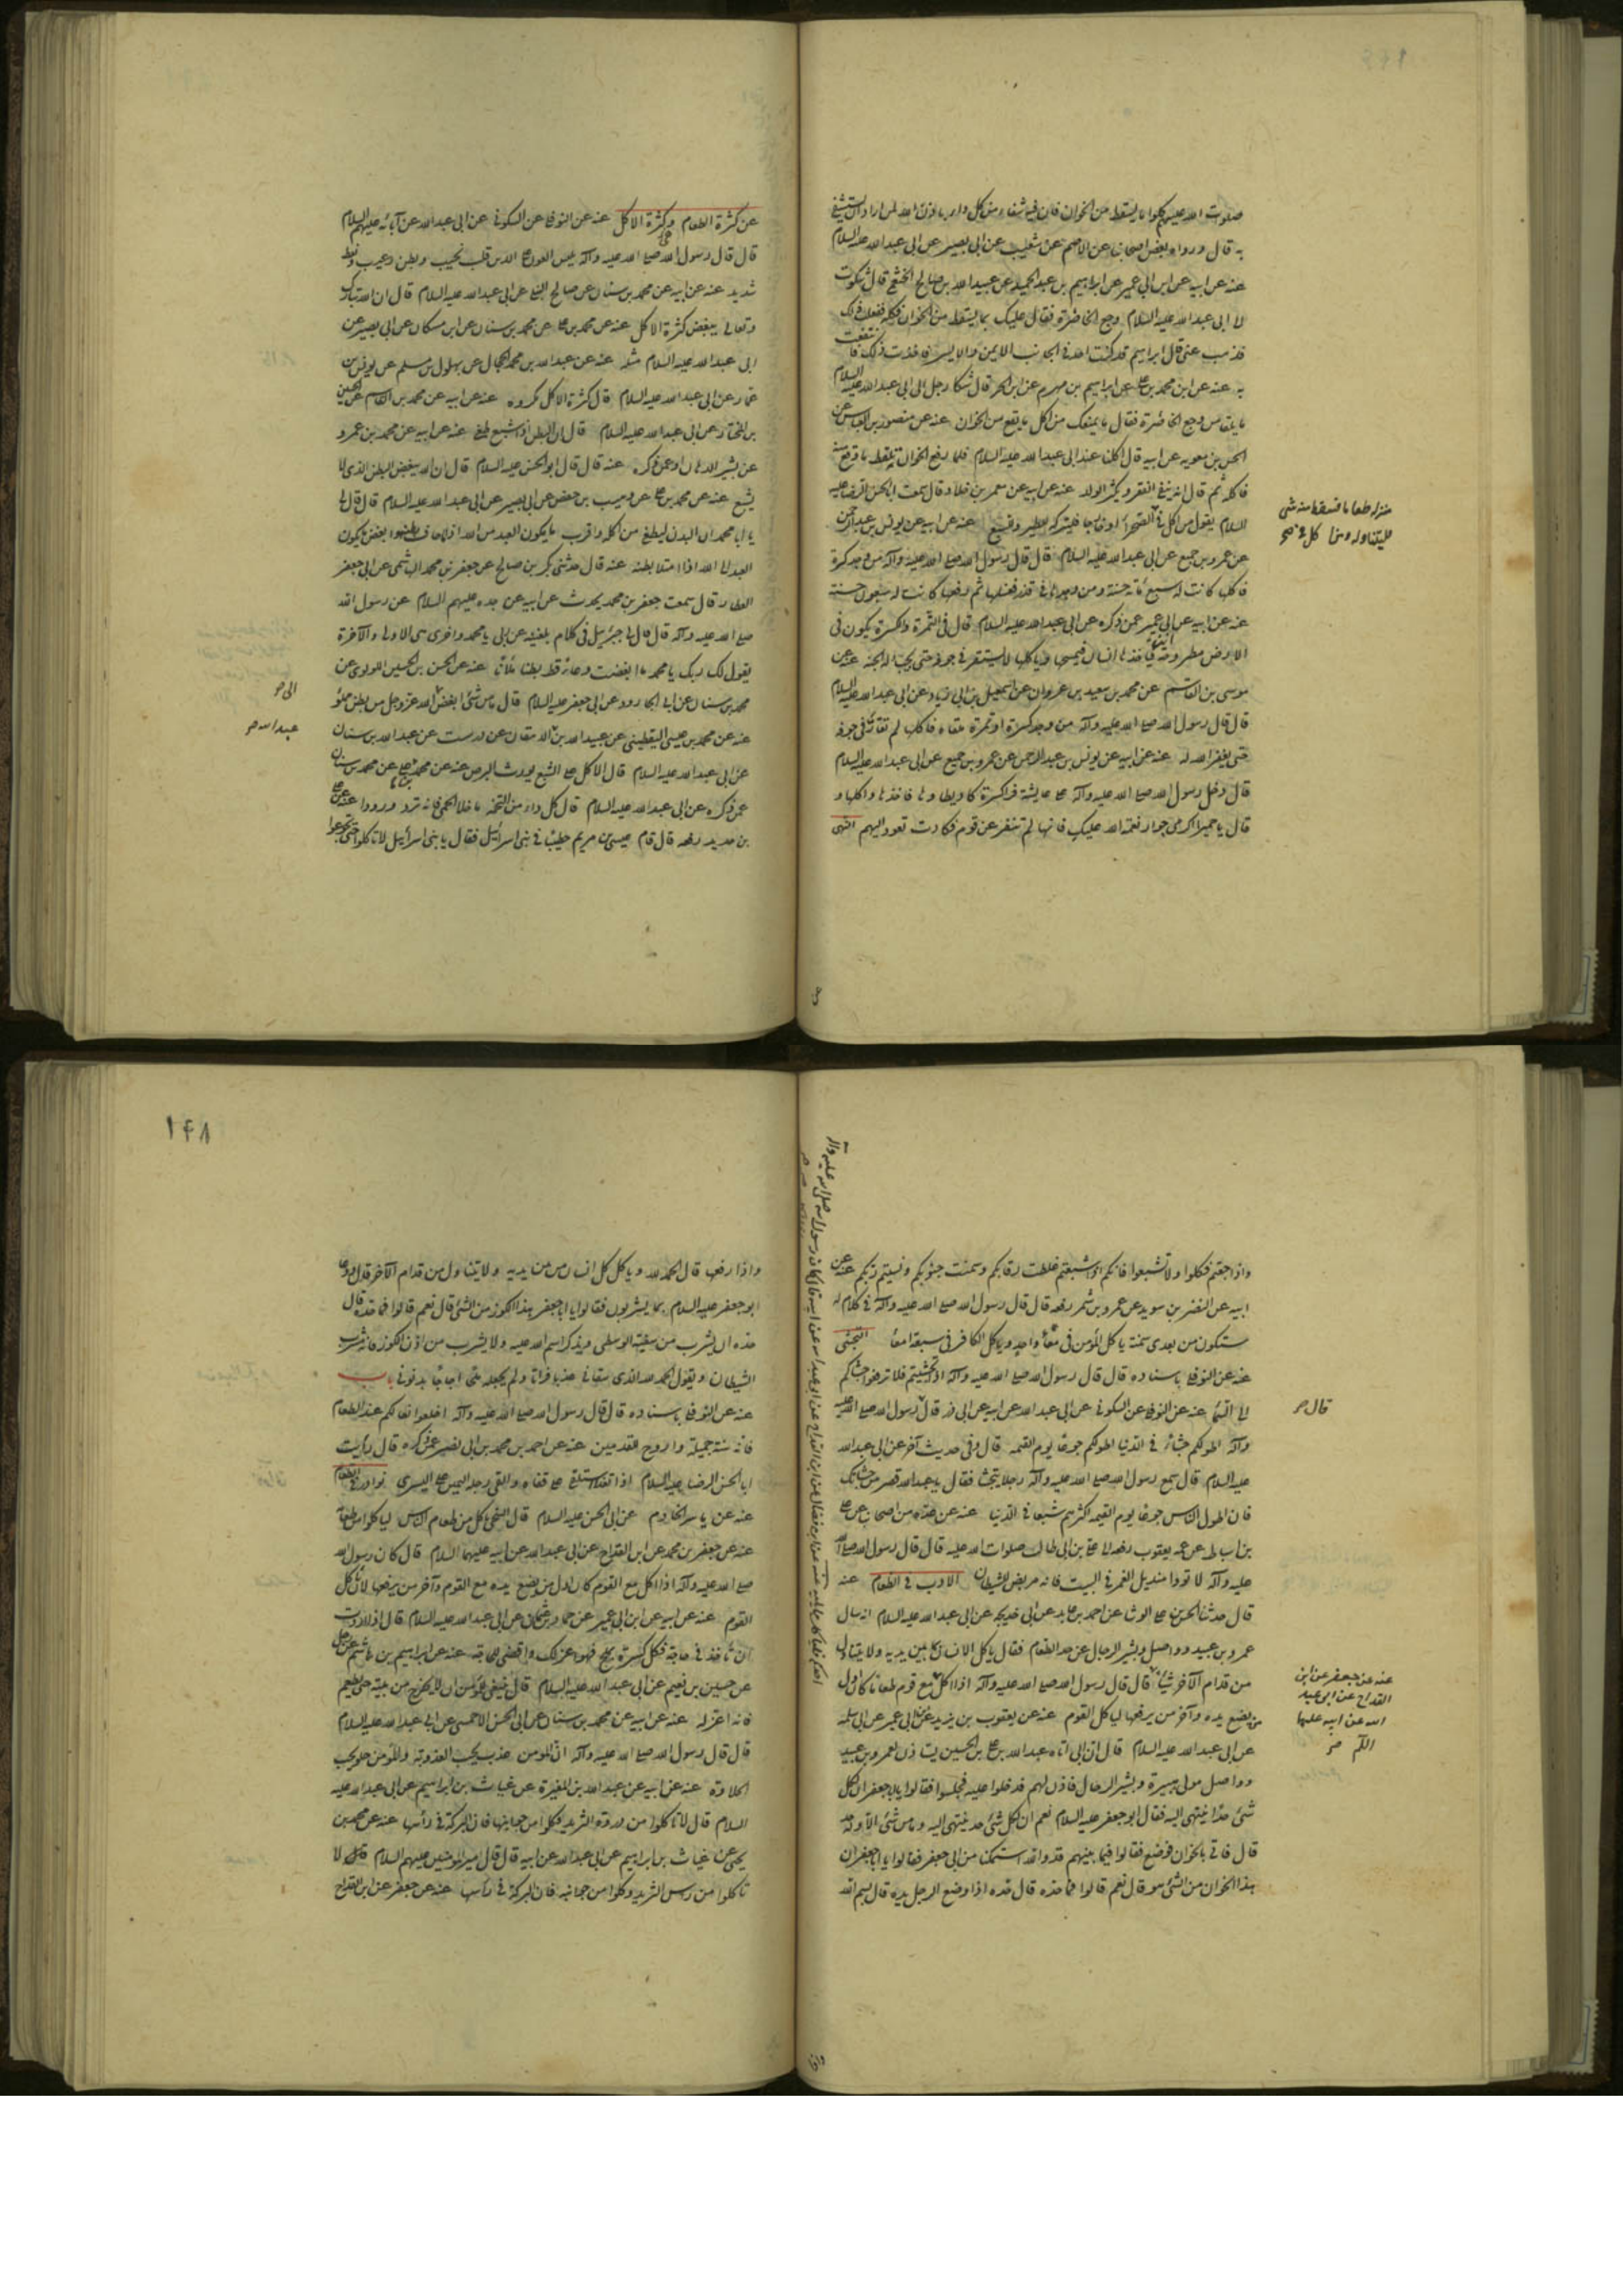 صلوات الله عليهم كلوا ما يسقط من الخوان فان فيه شفاء من كل داء باذن الله لمن اراد ان يستشفي
به قال ورواه بعض اصحابنا عن الاصم عن شعيب عن ابى بصير عن ابى عبد الله عليه السلام
عنه عن ابيه عن ابن ابى عمير عن ابراهيم بن عبد الحميد عن عبيد الله بن صالح الخثعمى قال شكوت
الى ابى عبد الله عليه السلام وجع الخاصرة فقال عليك بما يسقط من الخوان فكله ففعلت ذلك
فذهب عنى قال ابراهيم قد كنت اجد فى الجانب الايمن والايسر فاخذت ذلك فانتفعت
به عنه عن ابن محمد بن على عن ابراهيم بن مهزم عن ابن الحر قال شكا رجل الى ابى عبد الله عليه السلام
ما يلقا من وجع الخاصرة فقال ما يمنعك من اكل ما يقع من الخوان عنه عن منصور بن العباس عن
الحسن بن معوية عن ابيه قال اكلنا عند ابى عبد الله عليه السلام فلما رفع الخوان تلقط ما وقع منه
فاكله ثم قال انه ينفى الفقر ويكثر الولد عنه عن ابيه عن معمر بن خلاد قال سمعت ابا الحسن الرضا عليه
السلام يقول من اكل فى
منزله طعاما فسقط منه شى
فليتناوله ومن اكل فى صح
الصحراء او خارجا فليتركه للطير والسبع عنه عن ابيه عن يونس بن عبد الرحمن
عن عمرو بن جميع عن ابى عبد الله عليه السلام قال قال رسول الله صلى الله عليه وآله من وجد كسرة
فاكلها كانت له سبع مائة حسنة ومن وجدها فى قذر فغسلها ثم رفعها كانت له سبعون حسنة
عنه عن ابيه عن ابى عمير عمن ذكره عن ابى عبد الله عليه السلام قال فى التمرة والكسرة يكون فى
الارض مطروحة فياخذها انسان فيمسحها وياكلها لا يستقر فى جوفه حتى يجب له الجنة عنه عن
موسى بن القاسم عن محمد بن سعيد بن غزوان عن اسمعيل بن ابى زياد عن ابى عبد الله عليه السلام
قال قال رسول الله صلى الله عليه وآله من وجد كسرة او تمرة ملقاه فاكلها لم تقار فى جوفه
حتى يغفر الله له عنه عن ابيه عن يونس بن عبد الرحمن عن عمرو بن جميع عن ابى عبد الله عليه السلام
قال دخل رسول الله صلى الله عليه وآله على عايشة فراى كسرة كاد يطاوها فاخذها واكلها و
قال يا حميرا اكرمى جوار نعمة الله عليك فانها لم تنفر عن قوم فكادت تعود اليهم النهى
عن كثرة الطعام وكثرة الاكل عنه عن النوفلى عن السكونى عن ابى عبد الله عن آبائه عليهم السلام
قال قال رسول الله صلى الله عليه وآله بئس العون على الدين قلب نخيب وبطن رغيب ونعظ
شديد عنه عن ابيه عن محمد بن سنان عن صالح النيلى عن ابى عبد الله عليه السلام قال ان الله تبارك
وتعالى يبغض كثرة الاكل عنه عن محمد بن على عن محمد بن سنان عن ابن مسكان عن ابى بصير عن
ابى عبد الله عليه السلام مثله عنه عن عبد الله بن محمد الحجال عن بهلول بن مسلم عن يونس بن
عمار عن ابى عبد الله عليه السلام قال كثرة الاكل مكروه عنه عن ابيه عن محمد بن القاسم عن الحسين
بن المختار عن ابى عبد الله عليه السلام قال ان البطن اذا شبع طغى عنه عن ابيه عن محمد بن عمرو
عن بشير الدهان او عمن ذكره عنه قال قال ابو الحسن عليه السلام قال ان الله يبغض البطن الذى لا
يشبع عنه عن محمد بن على عن وهيب بن حفص عن ابى بصير عن ابى عبد الله عليه السلام قال قال لى
يا ابا محمد ان البدن ليطغى من اكله واقرب ما يكون العبد من الله اذا ما خف بطنه وابغض ما يكون
العبد الى الله اذا امتلا بطنه عنه قال حدثنى بكر بن صالح عن جعفر بن محمد الهاشمى عن ابى جعفر
العطار قال سمعت جعفر بن محمد يحدث عن ابيه عن جده عليهم السلام عن رسول الله
صلى الله عليه وآله قال قال لى جبرئيل فى كلام بلغنيه عن ربى يا محمد واخرى هى الاولى والآخرة
يقول لك ربك يا محمد ما ابغضت وعاء قط بطنا ملآنا عنه عن الحسن بن الحسين اللولوى عن
محمد بن سنان عن ابى الجارود عن ابى جعفر عليه السلام قال ما من شئ ابغض
الى صح
الله عز وجل من بطن مملو
عنه عن محمد بن عيسى اليقطينى عن عبيد الله بن
عبد الله صح
الدهقان عن درست عن عبد الله بن سنان
عن ابى عبد الله عليه السلام قال الاكل على الشبع يورث البرص عنه عن محمد بن على عن محمد بن سنان
عمن ذكره عن ابى عبد الله عليه السلام قال كل داء من التخمة ما خلا الحمى فانه ترد ورودا عنه عن على
بن حديد رفعه قال قام عيسى بن مريم خطيبا فى بنى اسرائيل فقال يا بنى اسرائيل لا تاكلوا حتى تجوعوا
واذا جعتم فكلوا ولا تشبعوا فانكم اذا شبعتم غلظت رقابكم وسمنت جنوبكم ونسيتم ربكم عنه عن
ابيه عن النضر بن سويد عن عمرو بن شمر رفعه قال قال رسول الله صلى الله عليه وآله فى كلام له
ستكون من بعدى سمنة ياكل المؤمن فى معاء واحد وياكل الكافر فى سبعة امعا التجشى
عنه عن النوفلى باسناده قال قال رسول الله صلى الله عليه وآله اذا تجشيتم فلا ترفعوا جشاكم
الى السماء عنه عن النوفلى عن السكونى عن ابى عبد الله عن ابيه عن ابى ذر قال
قال صح
رسول الله صلى الله عليه
وآله اطولكم جشاء فى الدنيا اطولكم جوعا يوم القيمة قال وفى حديث آخر عن ابى عبد الله
عليه السلام قال سمع رسول الله صلى الله عليه وآله رجلا يتجشا فقال يا عبد الله قصر من جشائك
فان اطول الناس جوعا يوم القيمة اكثرهم شبعا فى الدنيا عنه عن عدة من اصحابنا عن على
بن اسباط عن عمه يعقوب رفعه الى على بن ابى طالب صلوات الله عليه قال قال رسول الله صلى الله
عليه وآله لا تووا منديل الغمر فى البيت فانه مربض للشيطان الادب فى الطعام عنه
قال حدثنا الحسن بن على الوشا عن احمد بن عايد عن ابى خديجه عن ابى عبد الله عليه السلام انه سال
عمرو بن عبيد وواصل وبشير الرحال عن حد الطعام فقال ياكل الانسان مما بين يديه ولا يتناول
من قدام الآخر شيئا
عنه عن جعفر عن ابن
القداح عن ابى عبد
الله عن ابيه عليهما
السلم صح
قال قال رسول الله صلى الله عليه وآله اذا اكل مع قوم طعاما كان اول
من يضع يده وآخر من يرفعها لياكل القوم عنه عن يعقوب بن يزيد عن ابن ابى عمير عن ابى سلمه
عن ابى عبد الله عليه السلام قال ان ابى اتاه عبد الله بن على بن الحسين يستاذن لعمرو بن عبيد
وواصل مولى هبيرة وبشير الرحال فاذن لهم فدخلوا عليه فجلسوا فقالوا يا ابا جعفر ان لكل
شئ حدا ينتهى اليه فقال ابو جعفر عليه السلام نعم ان لكل شئ حد ينتهى اليه وما من شئ الا وله حد
قال فاتى بالخوان فوضع فقالوا فيما بينهم قد والله استمكنا من ابى جعفر فقالوا يا ابا جعفر ان
هذا الخوان من الشئ هو قال نعم قالوا فما حده قال حده اذا وضع الرجل يده قال بسم الله
واذا رفعها قال الحمد لله وياكل كل انسان من بين يديه ولا يتناول من قدام الآخر قال ودعا
ابو جعفر عليه السلام بما يشربون فقالوا يا ابا جعفر هذا الكوز من الشئ قال نعم قالوا فما حده قال
حده ان يشرب من شفته الوسطى ويذكر اسم الله عليه ولا يشرب من اذن الكوز فانه مشرب
الشيطان ويقول الحمد لله الذى سقانى عذبا فراتا ولم يجعله ملحا اجاجا بذنوبى باب
عنه عن النوفلى باسناده قال قال رسول الله صلى الله عليه وآله اخلعوا نعالكم عند الطعام
فانه سنة جميلة واروح للقدمين عنه عن احمد بن محمد بن ابى نصر عمن ذكره قال رايت
ابا الحسن الرضا عليه السلام اذا تغدا استلقى على قفاه والقى رجله اليمنى على اليسرى نوادر فى الطعام
عنه عن ياسر الخادم عن ابى الحسن عليه السلام قال السخى ياكل من طعام الناس لياكلوا من طعامه
عنه عن جعفر بن محمد عن ابن القداح عن ابى عبد الله عن ابيه عليهما السلام قال كان رسول الله
صلى الله عليه وآله اذا اكل مع القوم كان اول من يضع يده مع القوم وآخر من يرفعها لان ياكل
القوم عنه عن ابيه عن ابن ابى عمير عن حماد بن عثمان عن ابى عبد الله عليه السلام قال اذا اردت
ان تاخذ فى حاجة فكل كسرة بملح فهو اعز لك واقضى للحاجة عنه عن ابراهيم بن هاشم عن رجل
عن حسين بن نعيم عن ابى عبد الله عليه السلام قال ينبغى للمؤمن ان لا يخرج من بيته حتى يطعم
فانه اعز له عنه عن ابيه عن محمد بن سنان عن ابى الحسن الاحمسى عن ابى عبد الله عليه السلام
قال قال رسول الله صلى الله عليه وآله ان المؤمن عذب يحب العذوبة والمؤمن حلو يحب
الحلاوة عنه عن ابيه عن عبد الله بن المغيرة عن غياث بن ابراهيم عن ابى عبد الله عليه
السلام قال لا تاكلوا من ذروة الثريد وكلوا من جوانبها فان البركة فى راسها عنه عن محمد بن
يحيى عن غياث بن ابراهيم عن ابى عبد الله عن ابيه قال قال امير المؤمنين عليهم السلام قال لا
تاكلوا من راس الثريد وكلوا من جوانبه فان البركة فى راسها عنه عن جعفر عن ابن القداح
١٤٨